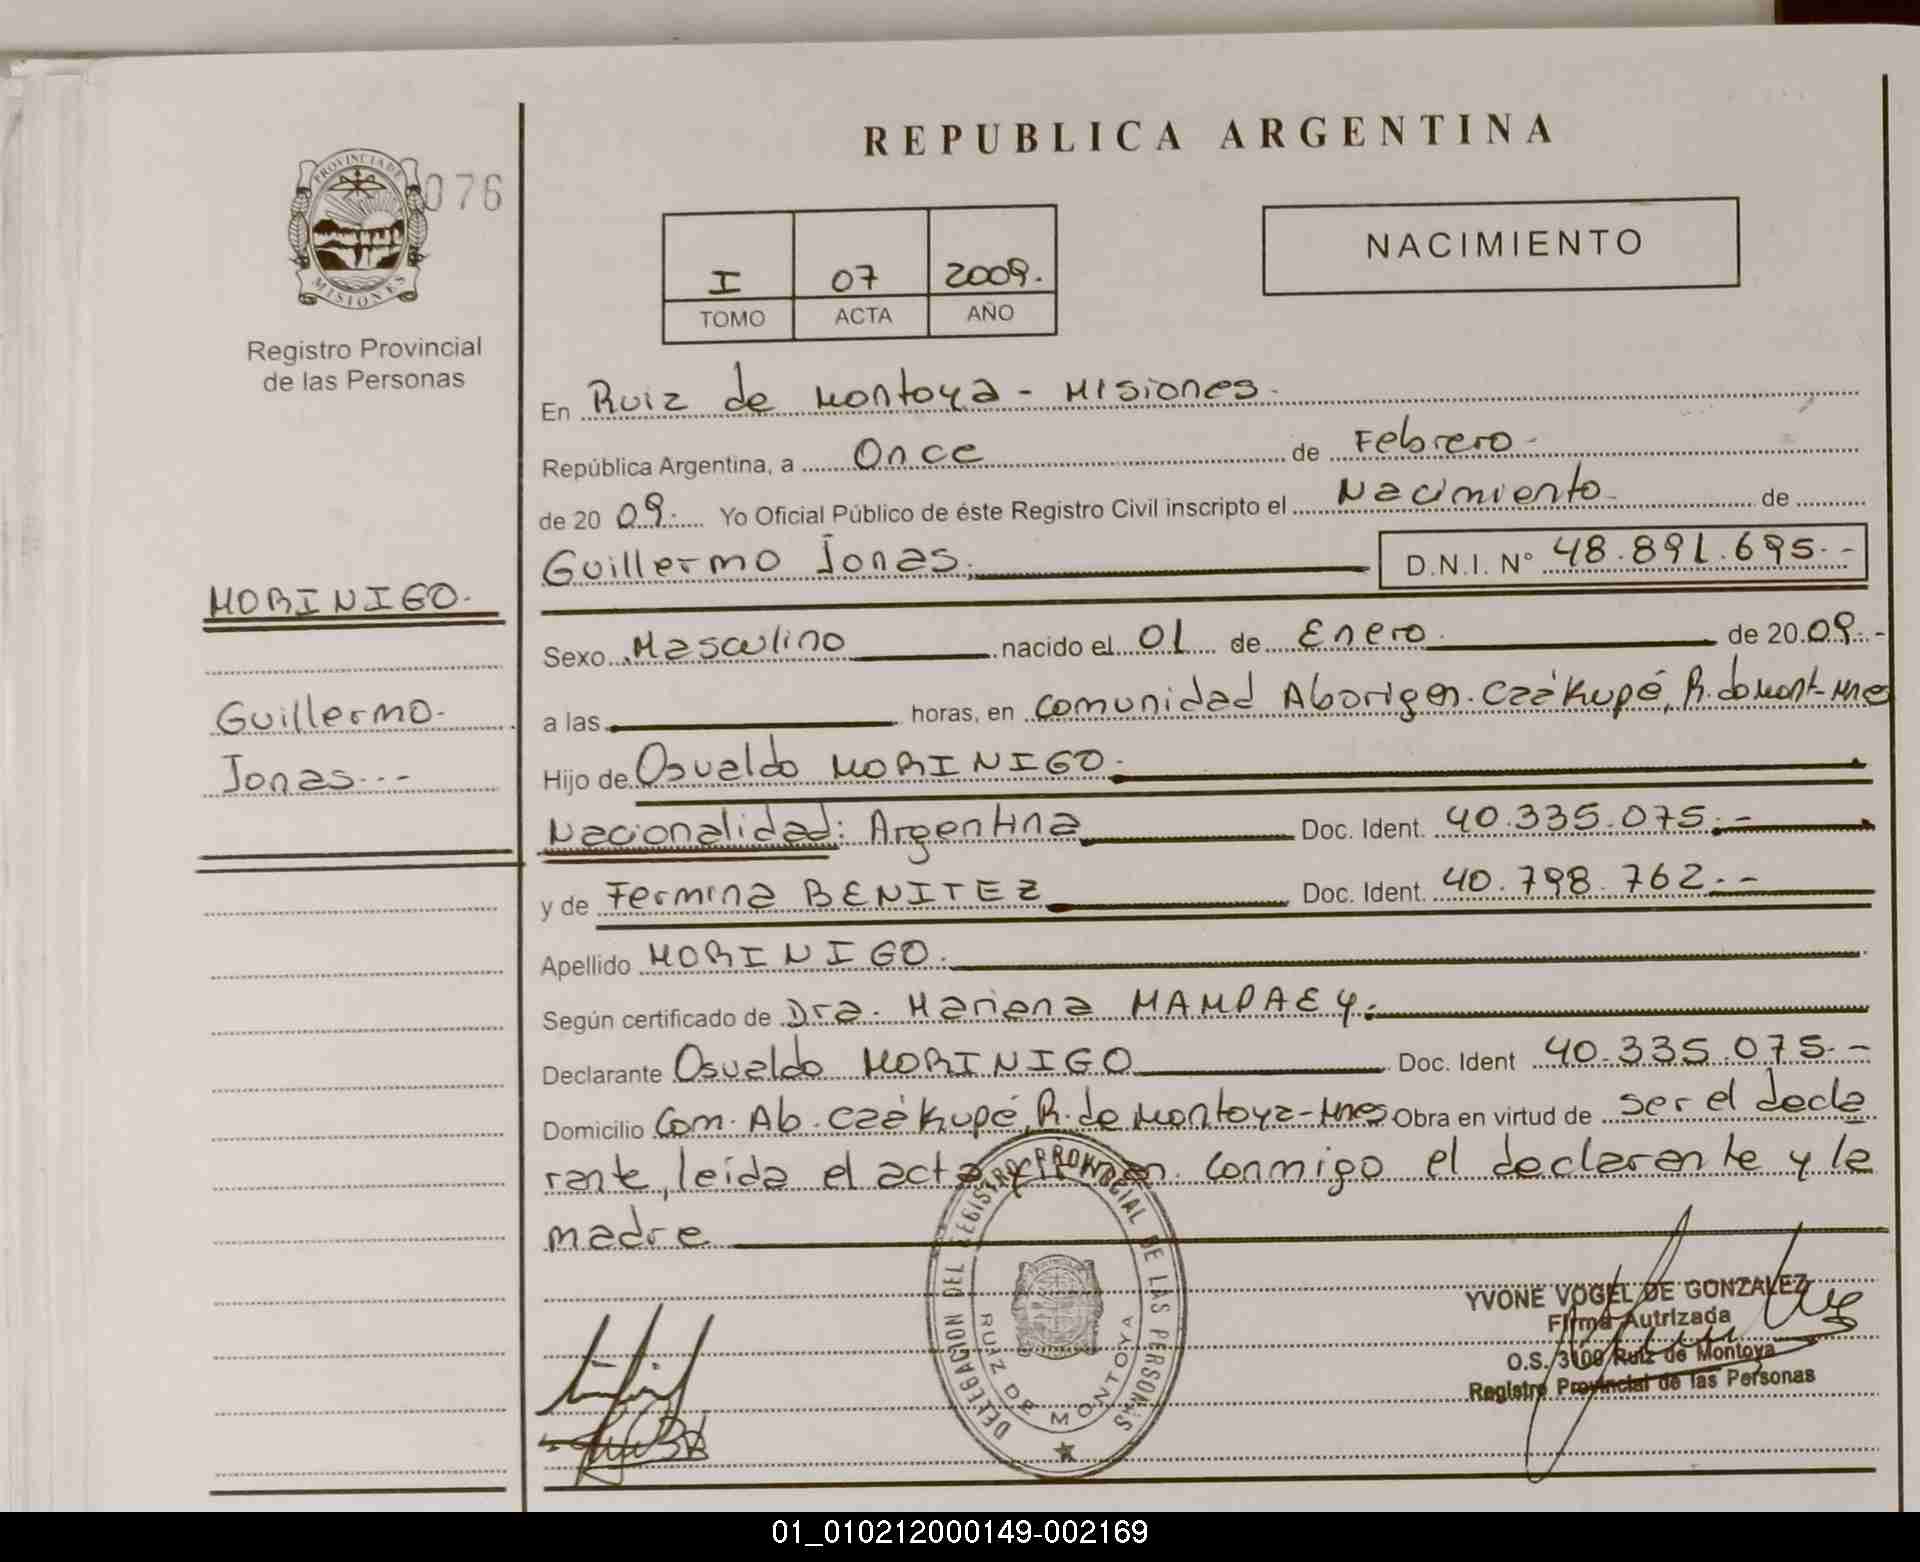 REPUBLICA ARGENTINA
PROVINCIA DE
MISIONES
076
Registro Provincial
de las Personas
I 07 2009.
TOMO ACTA AÑO
NACIMIENTO
En Ruiz de Montoya - Misiones.
República Argentina, a Once de Febrero-
de 20 09. Yo Oficial Público de éste Registro Civil inscripto el Nacimiento de
Guillermo Jonas. D.N.I. N° 48.891.695.-
MORINIGO.
Guillermo-
Jonas---
Sexo Masculino nacido el 01 de Enero. de 20 09.-
a las horas, en Comunidad Aborigen. Caá Kupé, R. de Mont-Mnes
Hijo de Osvaldo MORINIGO.
Nacionalidad: Argentina Doc. Ident. 40.335.075.-
y de Fermina BENITEZ Doc. Ident. 40.798.762.-
Apellido MORINIGO.
Según certificado de Dra. Mariena MAMPAEY.
Declarante Osvaldo MORINIGO Doc. Ident 40.335.075.-
Domicilio Com. Ab. Caá Kupé, R. de Montoya-Mnes Obra en virtud de ser el decla
rante, leida el acta firman conmigo el declarante y la
madre
DELEGACION DEL REGISTRO PROVINCIAL DE LAS PERSONAS
RUIZ DE MONTOYA
YVONE VOGEL DE GONZALEZ
Firma Autrizada
O.S. 3100 Ruiz de Montoya
Registro Provincial de las Personas
01_010212000149-002169